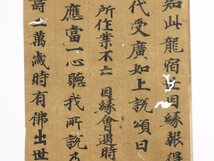 知此龍宿世因緣報得
代受廣如上說頌曰
所作業不亡因緣會遇時
應當一心聽我所說乃
壽一萬歲時有佛出世